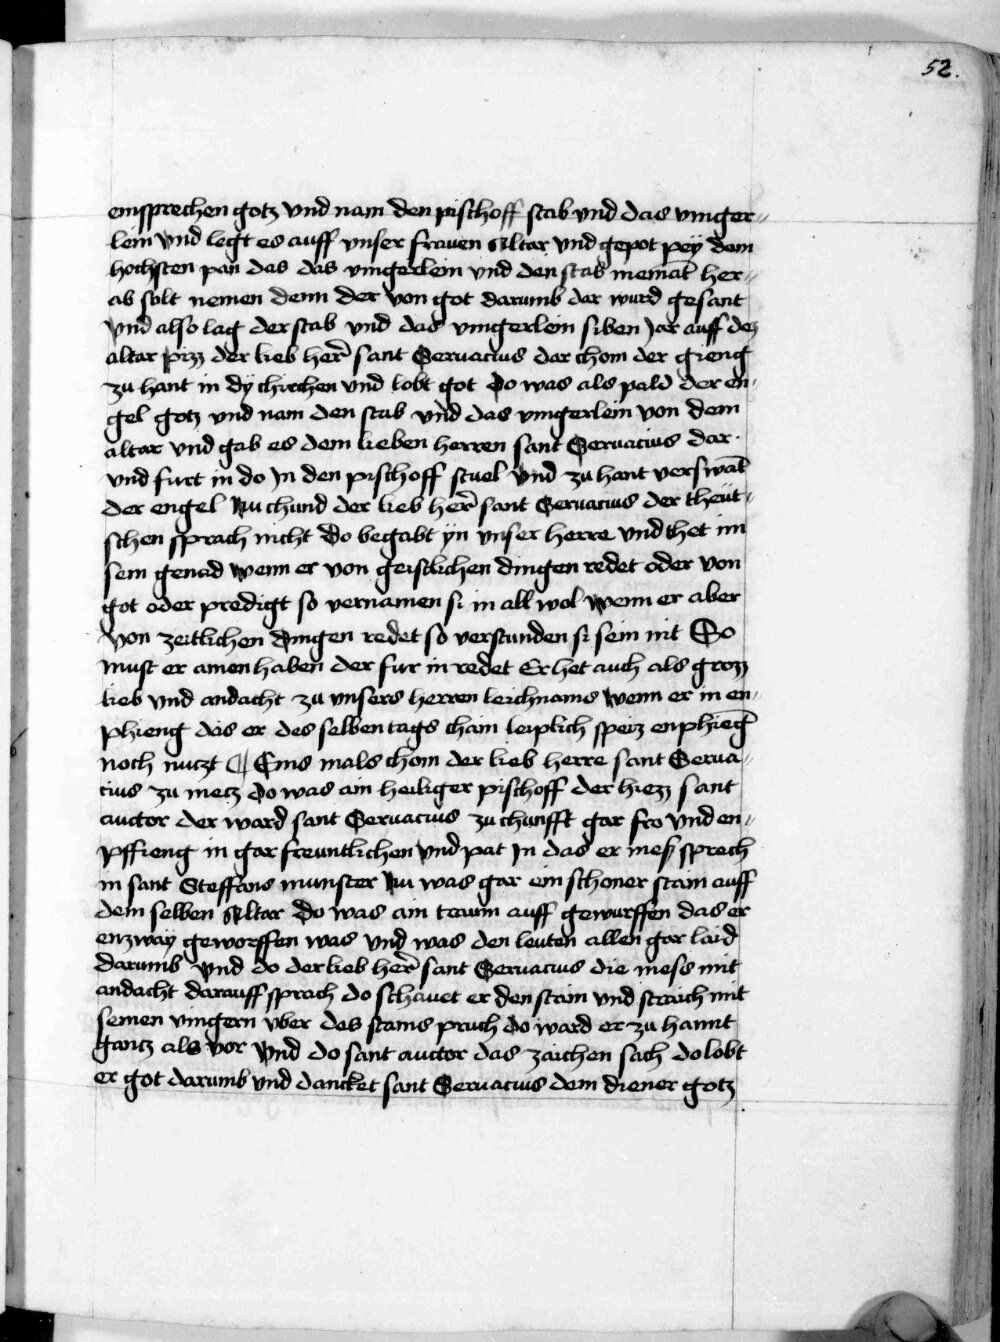 52.
einsprechen gotz vnd nam den pischoff stab vnd das vinger-
lein vnd legt es auff vnser frawen Altar vnd gepot pey dem
hochsten pan das das vingerlein vnd den stab niemāt her-
ab solt nemen denn der von got darumb dar wurd gesant
vnd also lag der stab vnd das vingerlein siben Jar auff dez
altar pizz der lieb her̄ sant Seruacius dar chom der gieng
zu hant in dy chirchen vnd lobt got Do was als pald der en-
gel gotz vnd nam den stab vnd das vingerlein von dem
altar vnd gab es dem lieben herren sant Seruacius dar
vnd furt in do Jn den pischoff stuel vnd zu hant verswāt
der engel Nu chund der lieb her̄ sant Seruacius der theut-
schen sprach nicht Do begabt yn vnser herre vnd thet im
sein genad wenn er von geistlichen dingen redet oder von
got oder predigt so vernamen si in all wol Wenn er aber
von zeitlichen dingen redet so verstunden si sein nit So
must er ainen haben der fur in redet Er het auch als grozz
lieb vnd andacht zu vnsers herren leichnams wenn er in en-
phieng das er des selben tags chain leiplich speiz enphieg̅
noch nuczt ¶ Eins mals chom der lieb herre sant Serua-
cius zu metz do was ain heiliger pischoff der hiezz sant
auctor der ward sant Seruacius zu chunfft gar fro vnd en-
pffieng in gar freuntlichen vnd pat Jn das er mess sprech
in sant Steffans munster Nu was gar ein schoner stain auff
dem selben Altar Do was ain traum auff gewurffen das er
enzway geworffen was vnd was den leuten allen gar laid
darumb vnd do der lieb her̄ sant Seruacius die mess mit
andacht darauff sprach do schauet er den stain vnd straich mit
seinen vingern vber des stains pruch do ward er zu hannt
gantz als vor vnd do sant auctor das zaichen sach do lobt
er got darumb vnd dancket sant Seruacius dem diener gotz